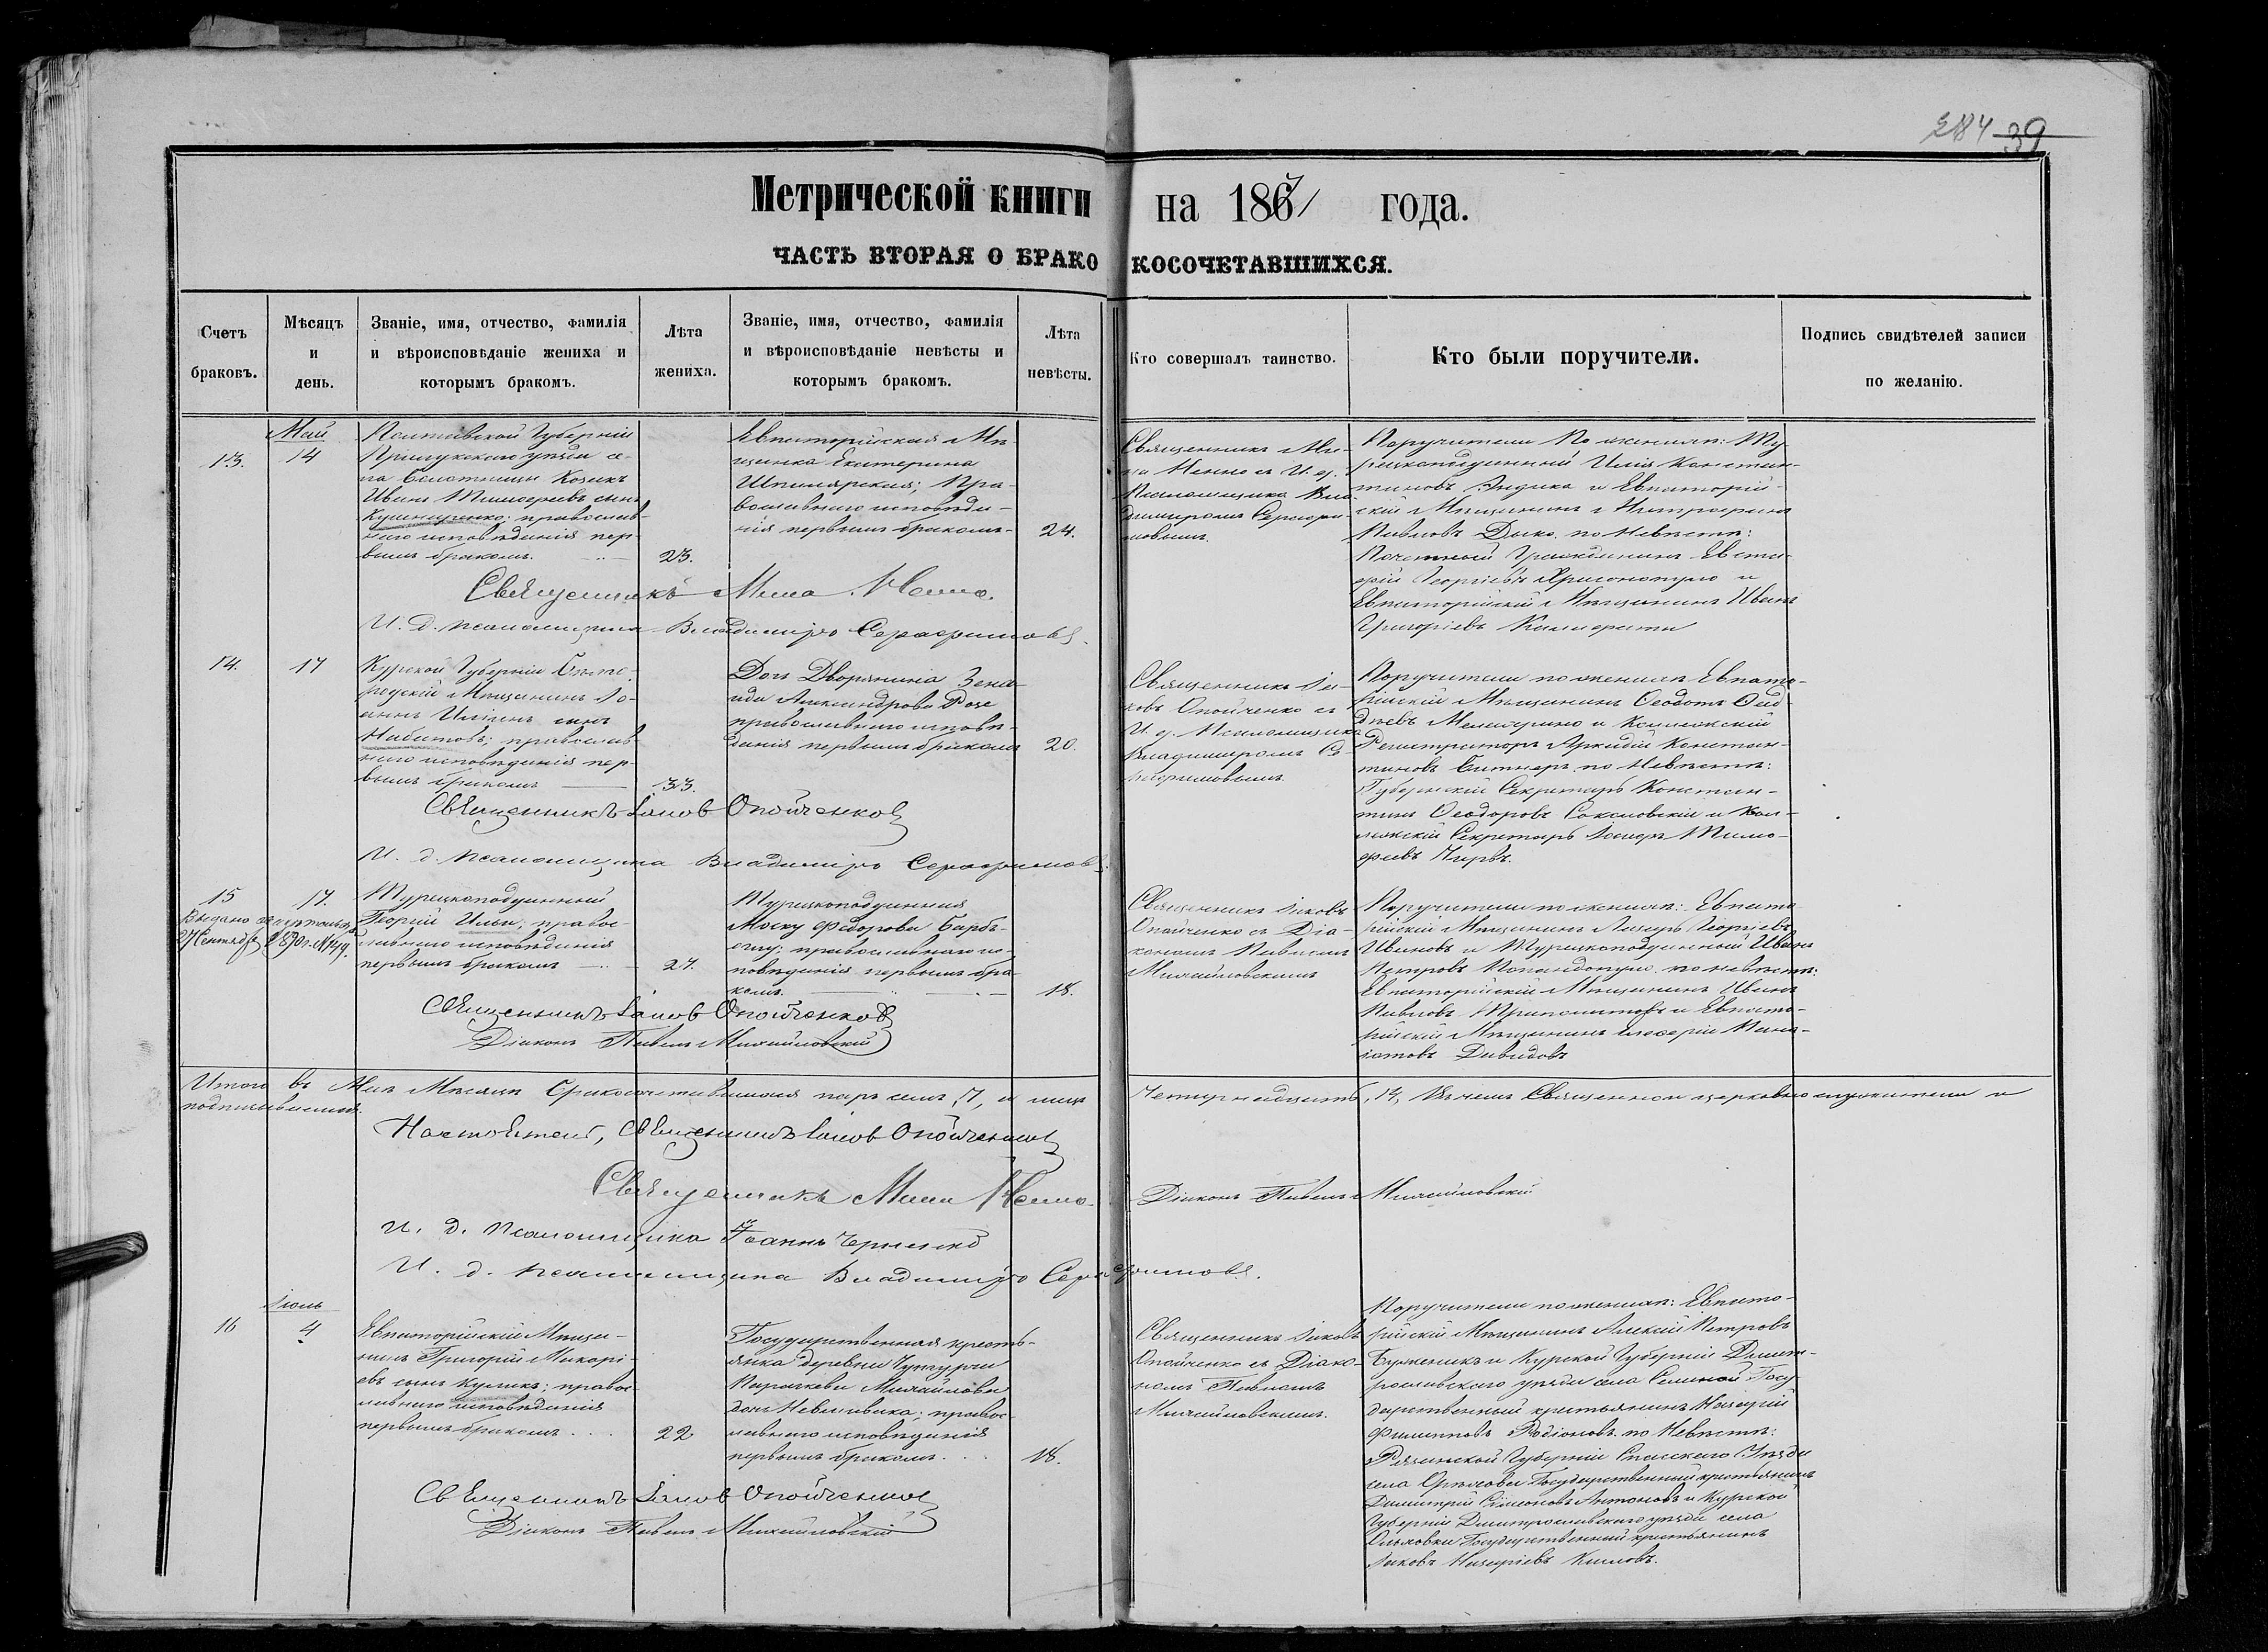 284 39
Метрической книги на 1867/ года.
ЧАСТЬ ВТОРАЯ О БРАКОКОСОЧЕТАВШИХСЯ.
Счетъ
браковъ.
Мѣсяцъ
и
день.
Званіе, имя, отчество, фамилія
и вѣроисповѣданіе жениха и
которымъ бракомъ.
Лѣта
жениха.
Званіе, имя, отчество, фамилія
и вѣроисповѣданіе невѣсты и
которымъ бракомъ.
Лѣта
невѣсты.
Кто совершалъ таинство.
Кто были поручители.
Подпись свидѣтелей записи
по желанію.
13.
Май
14
Полтавской Губерніи
Прилукскаго уѣзда се-
ла Козакъ
Иванъ сынъ
православ-
наго исповѣданія пер-
вымъ бракомъ.
23.
Евпаторійская Мѣ-
щанка Екатерина
Шполярская; пра-
вославнаго исповѣда-
нія первымъ бракомъ
24.
Священникъ Ми-
на съ И. д.
Псаломщика Вла-
димиромъ Серафи-
мовымъ.
Поручители по женихѣ: Ту-
рецкоподданный Илія Констан-
тиновъ и Евпаторій-
скій Мѣщанинъ Митрофанъ
Павловъ Дыко. по Невѣстѣ:
Почетный Гражданинъ Евста-
фій Георгіевъ и
Евпаторійскій Мѣщанинъ Иванъ
Григоріевъ
Священникъ Мина
И. д. псаломщика Владиміръ Серафимовъ.
14.
17
Курской Губерніи Бѣлго-
родскій Мѣщанинъ Іо-
аннъ сынъ
православ-
наго исповѣданія пер-
вымъ бракомъ
33.
Дочь Дворянина Зена-
ида Александрова Розе
православнаго исповѣ-
данія первымъ бракомъ
20.
Священникъ Іа-
ковъ Опойченко съ
И. д. Псаломщика
Владимиромъ Се-
рафимовымъ
Поручители по женихѣ Евпато-
рійскій Мѣщанинъ Ѳеодотъ
и Коллежскій
Регистраторъ Аркадій Констан-
тиновъ по Невѣстѣ:
Губернскій Секретарь Констан-
тинъ Ѳеодоровъ Соколовскій и Кол-
лежскій Секретарь Тимо-
феевъ
Священникъ Іаковъ Опойченко
И. д. псаломщика Владиміръ Серафимовъ.
15
Выдано
27 Сентября
17.
Турецкоподданный
Георгій Ильи; правос-
лавнаго исповѣданія
первымъ бракомъ
27.
Турецкоподданная
Федорова
православнаго ис-
повѣданія первымъ бра-
комъ.
18.
Священникъ Іаковъ
Опойченко съ Діа-
кономъ Павломъ
Михайловскимъ
Поручители по женихѣ: Евпато-
рійскій Мѣщанинъ Лазарь Георгіевъ
Ивановъ и Турецкоподданный Иванъ
Петровъ Попандопуло по невѣстѣ:
Евпаторійскій Мѣщанинъ Иванъ
Павловъ и Евпато-
рійскій Мѣщанинъ
Давидовъ
Священникъ Іаковъ Опойченко
Діаконъ Павелъ Михайловскій
Итого въ Маѣ Мѣсяцѣ бракосочетавшихся паръ семь, 7, а лицъ Четырнадцать, 14, въ чемъ Священно и церковно служители и
подписываемся.
Настоятель, Священникъ Іаковъ Опойченко
Священникъ Мина
Діаконъ Павелъ Михайловскій
И. д. псаломщика Іоаннъ
И. д. псаломщика Владиміръ Серафимовъ.
16
Іюль
4
Евпаторійскій Мѣща-
нинъ Григорій Макарі-
евъ сынъ Куликъ; правос-
лавнаго исповѣданія
первымъ бракомъ
22
Государственная кресть-
янка деревни
Параскева Михайлова
дочь правос-
лавнаго исповѣданія
первымъ бракомъ.
18.
Священникъ Іаковъ
Опойченко съ Діако-
номъ Павломъ
Михайловскимъ.
Поручители по женихѣ: Евпато-
рійскій Мѣщанинъ Алексій Петровъ
и Курской Губерніи Дмит-
роевскаго уѣзда села Госу-
дарственный крестьянинъ Назарій
Филиповъ Родіоновъ. по Невѣстѣ:
Рязанской Губерніи Спасскаго Уѣзда
села Государственный крестьянинъ
Димитрій Симеоновъ Антоновъ и Курской
Губерніи уѣзда села
Ольховки Государственный крестьянинъ
Іаковъ Назаріевъ
Священникъ Іаковъ Опойченко
Діаконъ Павелъ Михайловскій